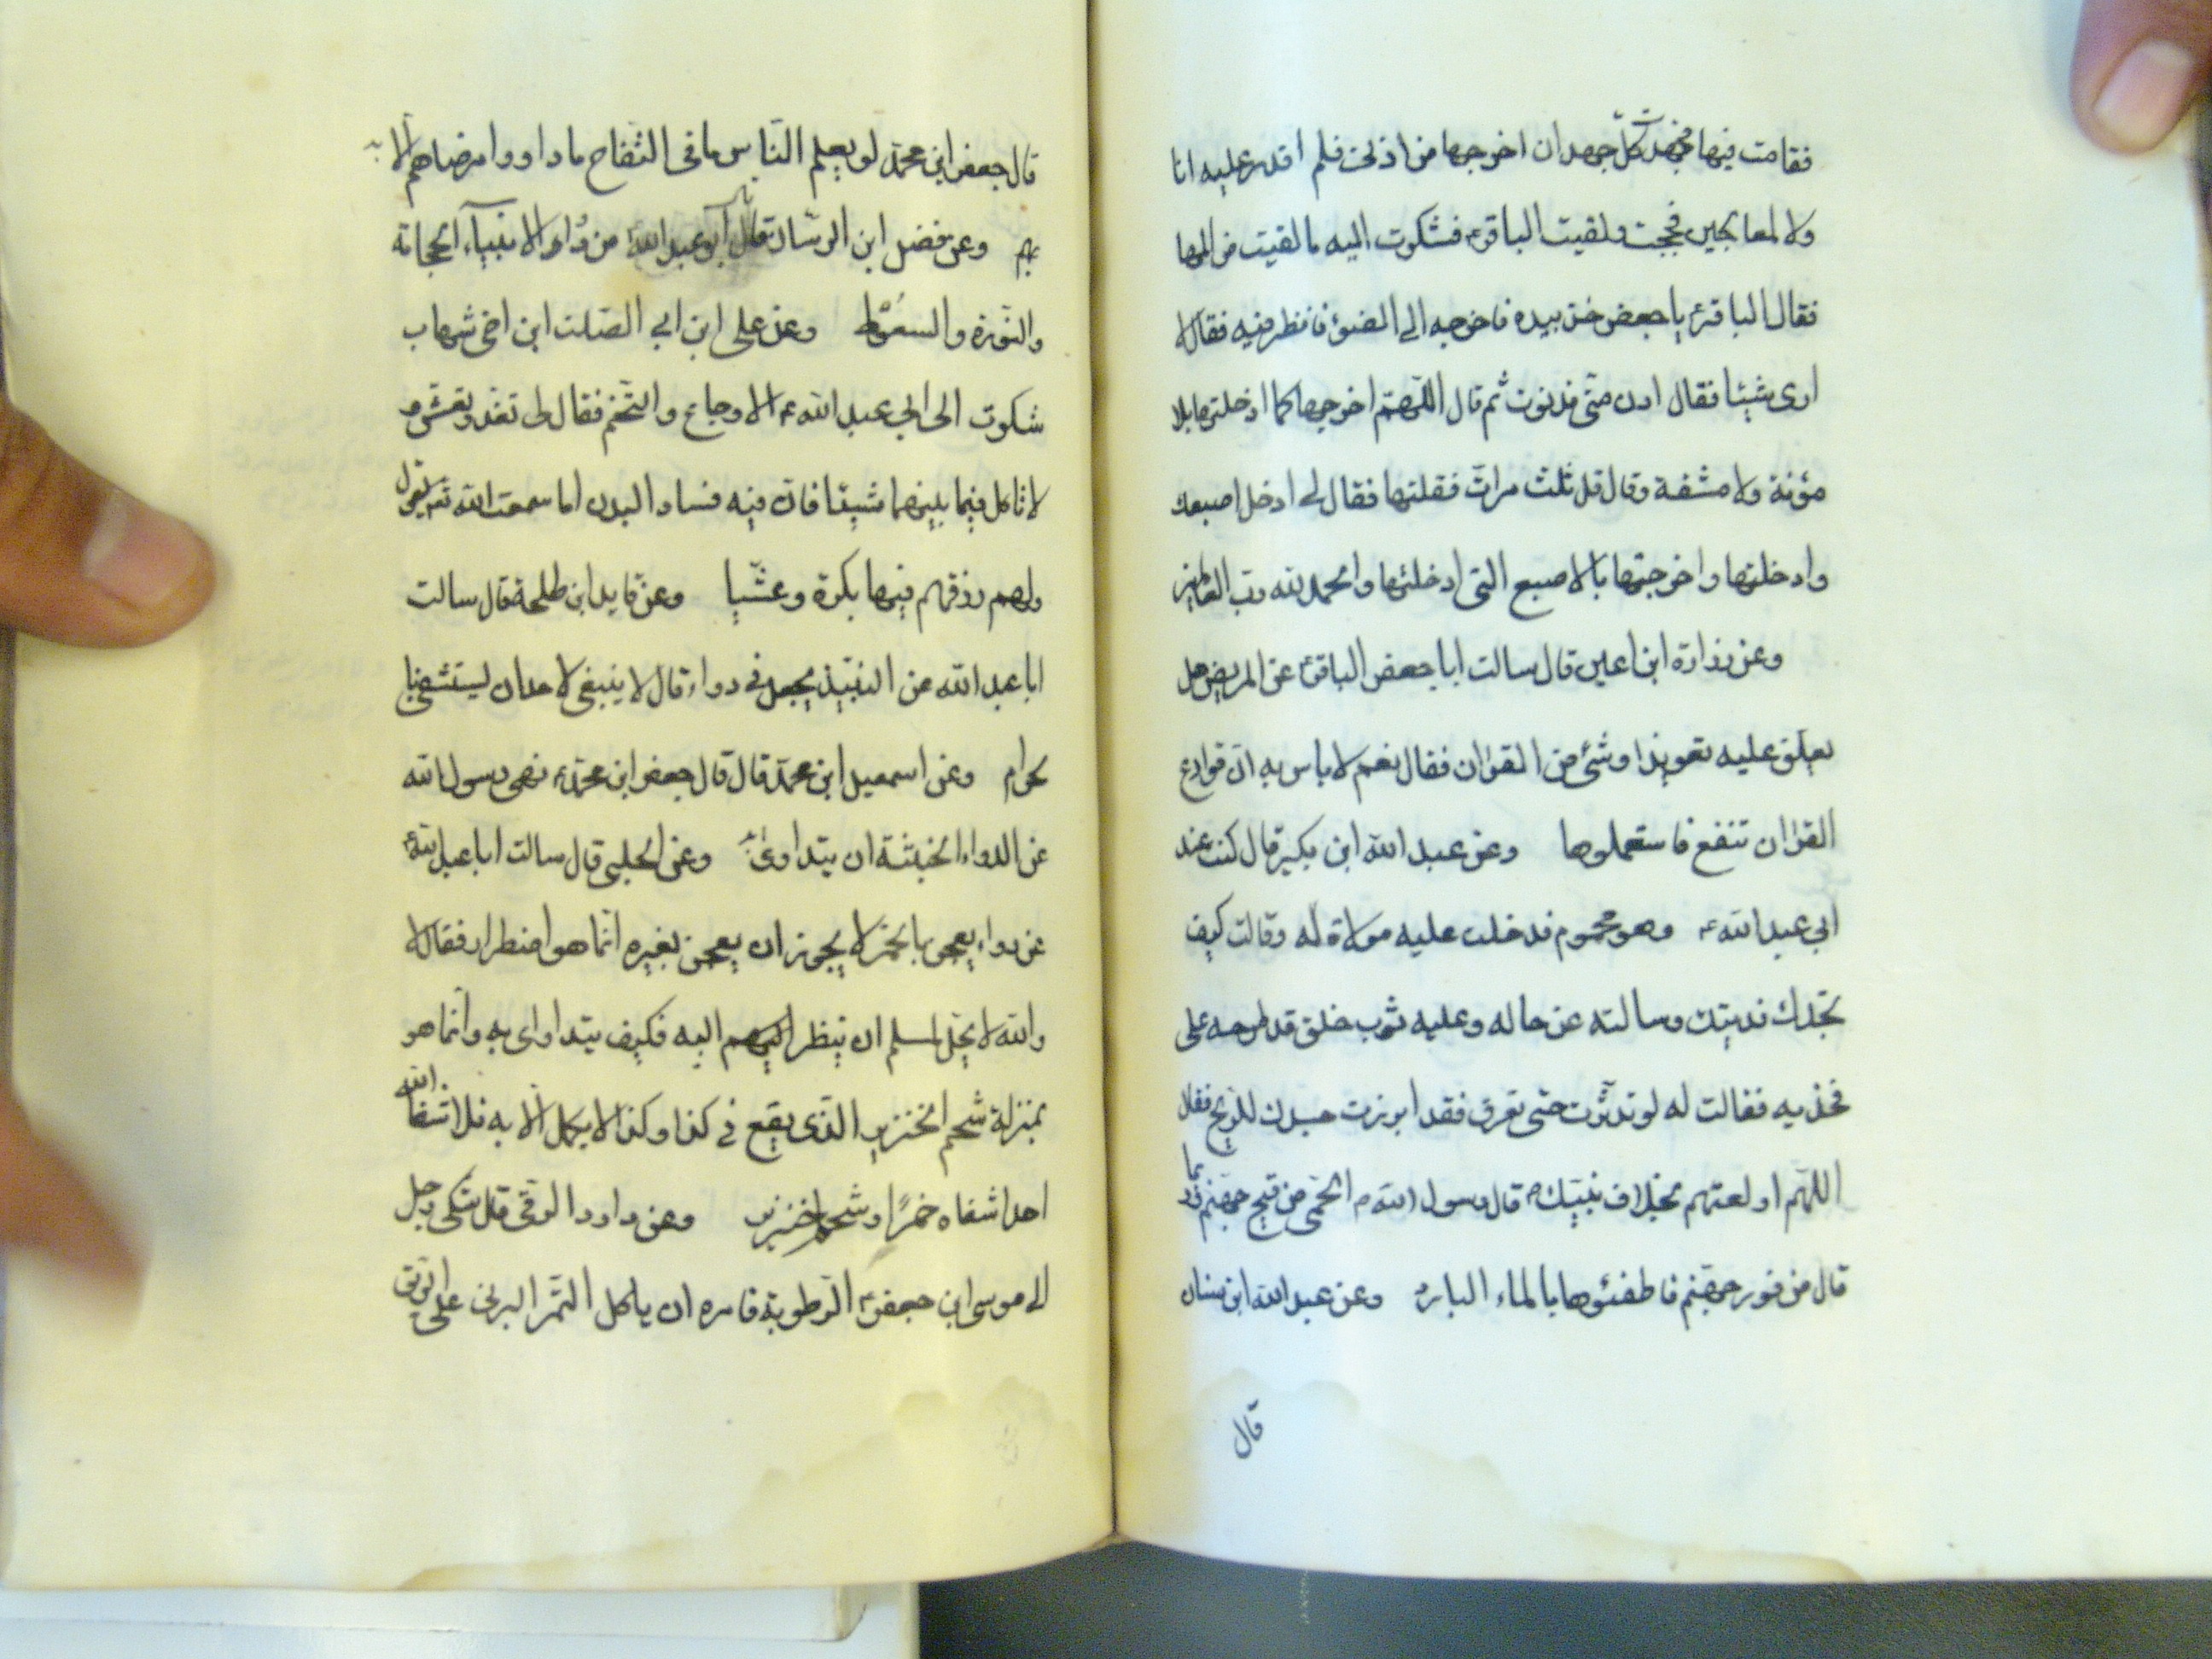 فقامت فيها فجهدت كلّ جهد ان اخرجها من اذنى فلم اقدر عليه انا
ولا لمعالجين فحججت ولقيت الباقرء فشكوت اليه ما لقيت من المها
فقال الباقرء يا جعفر خذ بيده فاخرجه الى الضوء فانظر فيه فقال لا
ارى شيئا فقال ادن منّى فدنوت ثم قال اللّهمّ اخرجها كما ادخلتها بلا
مؤنة ولا مشقة وقال قل ثلث مرات فقلتها فقال لى ادخل اصبعك
وادخلتها واخرجتها بالاصبع التى ادخلتها والحمد لله رب العالمين
وعن زرارة ابن اعين قال سالت ابا جعفر الباقرء عن المريض هل
يعلق عليه تعويذا وشئ من القران فقال نعم لا باس به ان قوارع
القران تنفع فاستعملوها وعن عبد الله ابن بكير قال كنت عند
ابى عبد اللهء وهو محموم فدخلت عليه مولاة له وقالت كيف
تجدك فديتك وسالته عن حاله وعليه ثوب خلق قد طرحه على
فخذيه فقالت له لو تدثّرت حتى تعرق فقد ابرزت جسدك للريح فقال
اللّهمّ اولعتهم بخلاف نبيّك قال رسول الله الحمّى من فيح جهنم وربما
قال من فور جهنم فاطفئوها بالماء البارد وعن عبد الله ابن سنان
قال
قال جعفر ابن محمّد لو يعلم النّاس ما فى التّفاح ما داووا مرضاهم الا به
بهم وعن فضل ابن الرسّان قال قال ابو عبد اللهء من دواء الانبياء الحجامة
والنّورة والسعوط وعن على ابن ابى الصّلت ابن اخى شهاب
شكوت الى ابى عبد اللهء الاوجاع والتّخم فقال لى تغدّ وتعشّ و
لا تاكل فيما بينهما شيئا فان فيه فساد البدن اما سمعت الله تع يقول
ولهم رزقهم فيها بكرة وعشّيا وعن قايد ابن طلحة قال سالت
ابا عبد الله من النبيذ يجعل فى دواء قال لا ينبغى لاحد ان يستشفى
بحرام وعن اسمعيل ابن محمّد قال قال جعفر ابن محمّدء نهى رسول الله
عن الدواء الخبيثة ان يتداوى به وعن الحلبى قال سالت ابا عبد اللهء
عن دواء يعجن بالخمر لا يجوز ان يعجن بغيره انّما هو اضطرار فقال لا
والله لا يحلّ لمسلم ان ينظر اليهم اليه فكيف يتداوى به وانّما هو
بمنزلة شحم الخنزير الذى يقع فى كذا وكذا لا يكمل الا به فلا شفا الله
احدا شفاه خمرًا وشحم خنزير وعن داود الرقى قال شكى رجل
الى موسى ابن جعفرء الرّطوبة فامره ان ياكل التّمر البرنى على الريق